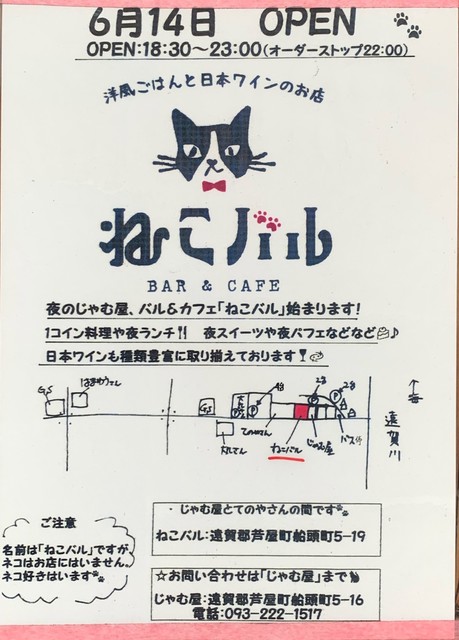 6月14日 OPEN
OPEN:18:30~23:00(オーダーストップ22:00)
洋風ごはんと日本ワインのお店
ねこバル
BAR & CAFE
夜のじゃむ屋、バル&カフェ「ねこバル」始まります!
1コイン料理や夜ランチ!! 夜スイーツや夜パフェなどなど♪
日本ワインも種類豊富に取り揃えております!
GS
GS
P
P
2台
2台
てのやさん
ねこバル
じゃむ屋
バス停
↑海
遠賀川
・じゃむ屋とてのやさんの間です
ねこバル:遠賀郡芦屋町船頭町5-19
ご注意
名前は「ねこバル」ですが、
ネコはお店にはいません。
ネコ好きはいます
☆お問い合わせは「じゃむ屋」まで
じゃむ屋:遠賀郡芦屋町船頭町5-16
電話:093-222-1517